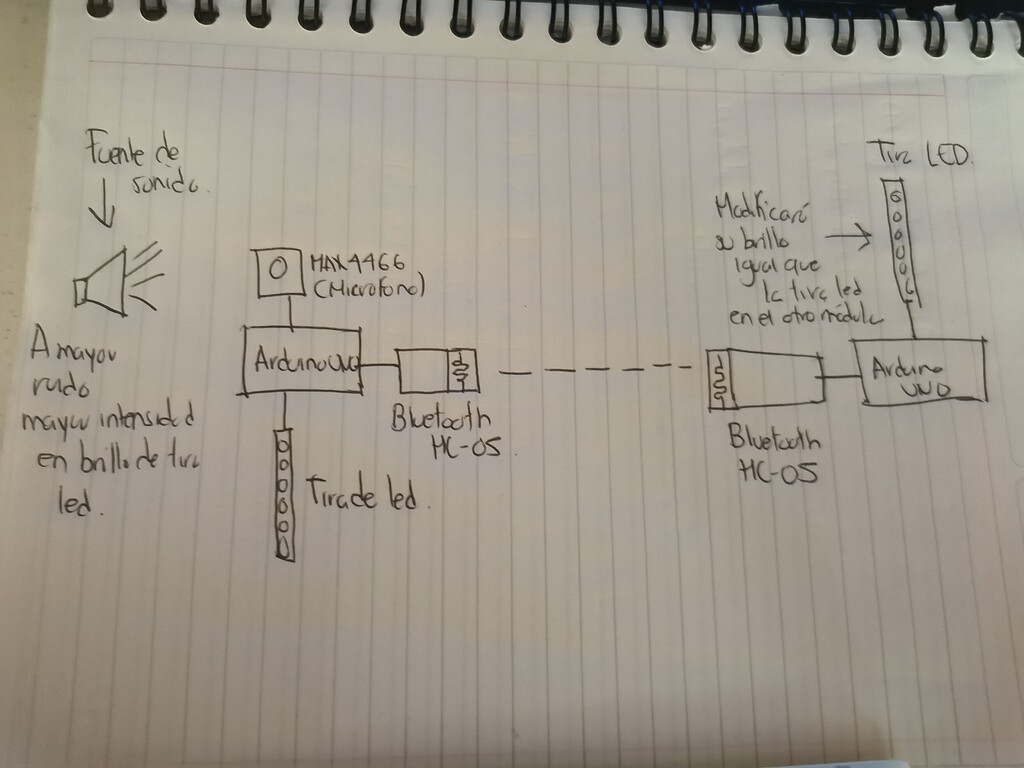 Fuente de
sonido.
A mayor
ruido
mayor intensidad
en brillo de tira
led.
MAX4466
(Microfono)
Arduino UNO
Bluetooth
HC-05.
Tira de led.
Tira LED.
Modificará
su brillo
igual que
la tira led
en el otro módulo
Arduino
UNO
Bluetooth
HC-05